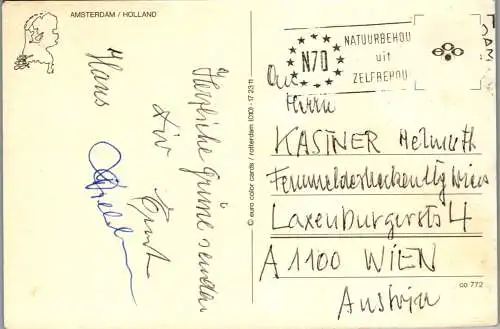 AMSTERDAM / HOLLAND
Herzliche Grüße senden
Ernst
Hans
© euro color cards / rotterdam (010) - 17 23 11
N70
NATUURBEHOU
uit
ZELFBEHOU
Herrn
KASTNER Helmuth
Laxenburgerstr 4
A 1100 WIEN
Austria
co 772